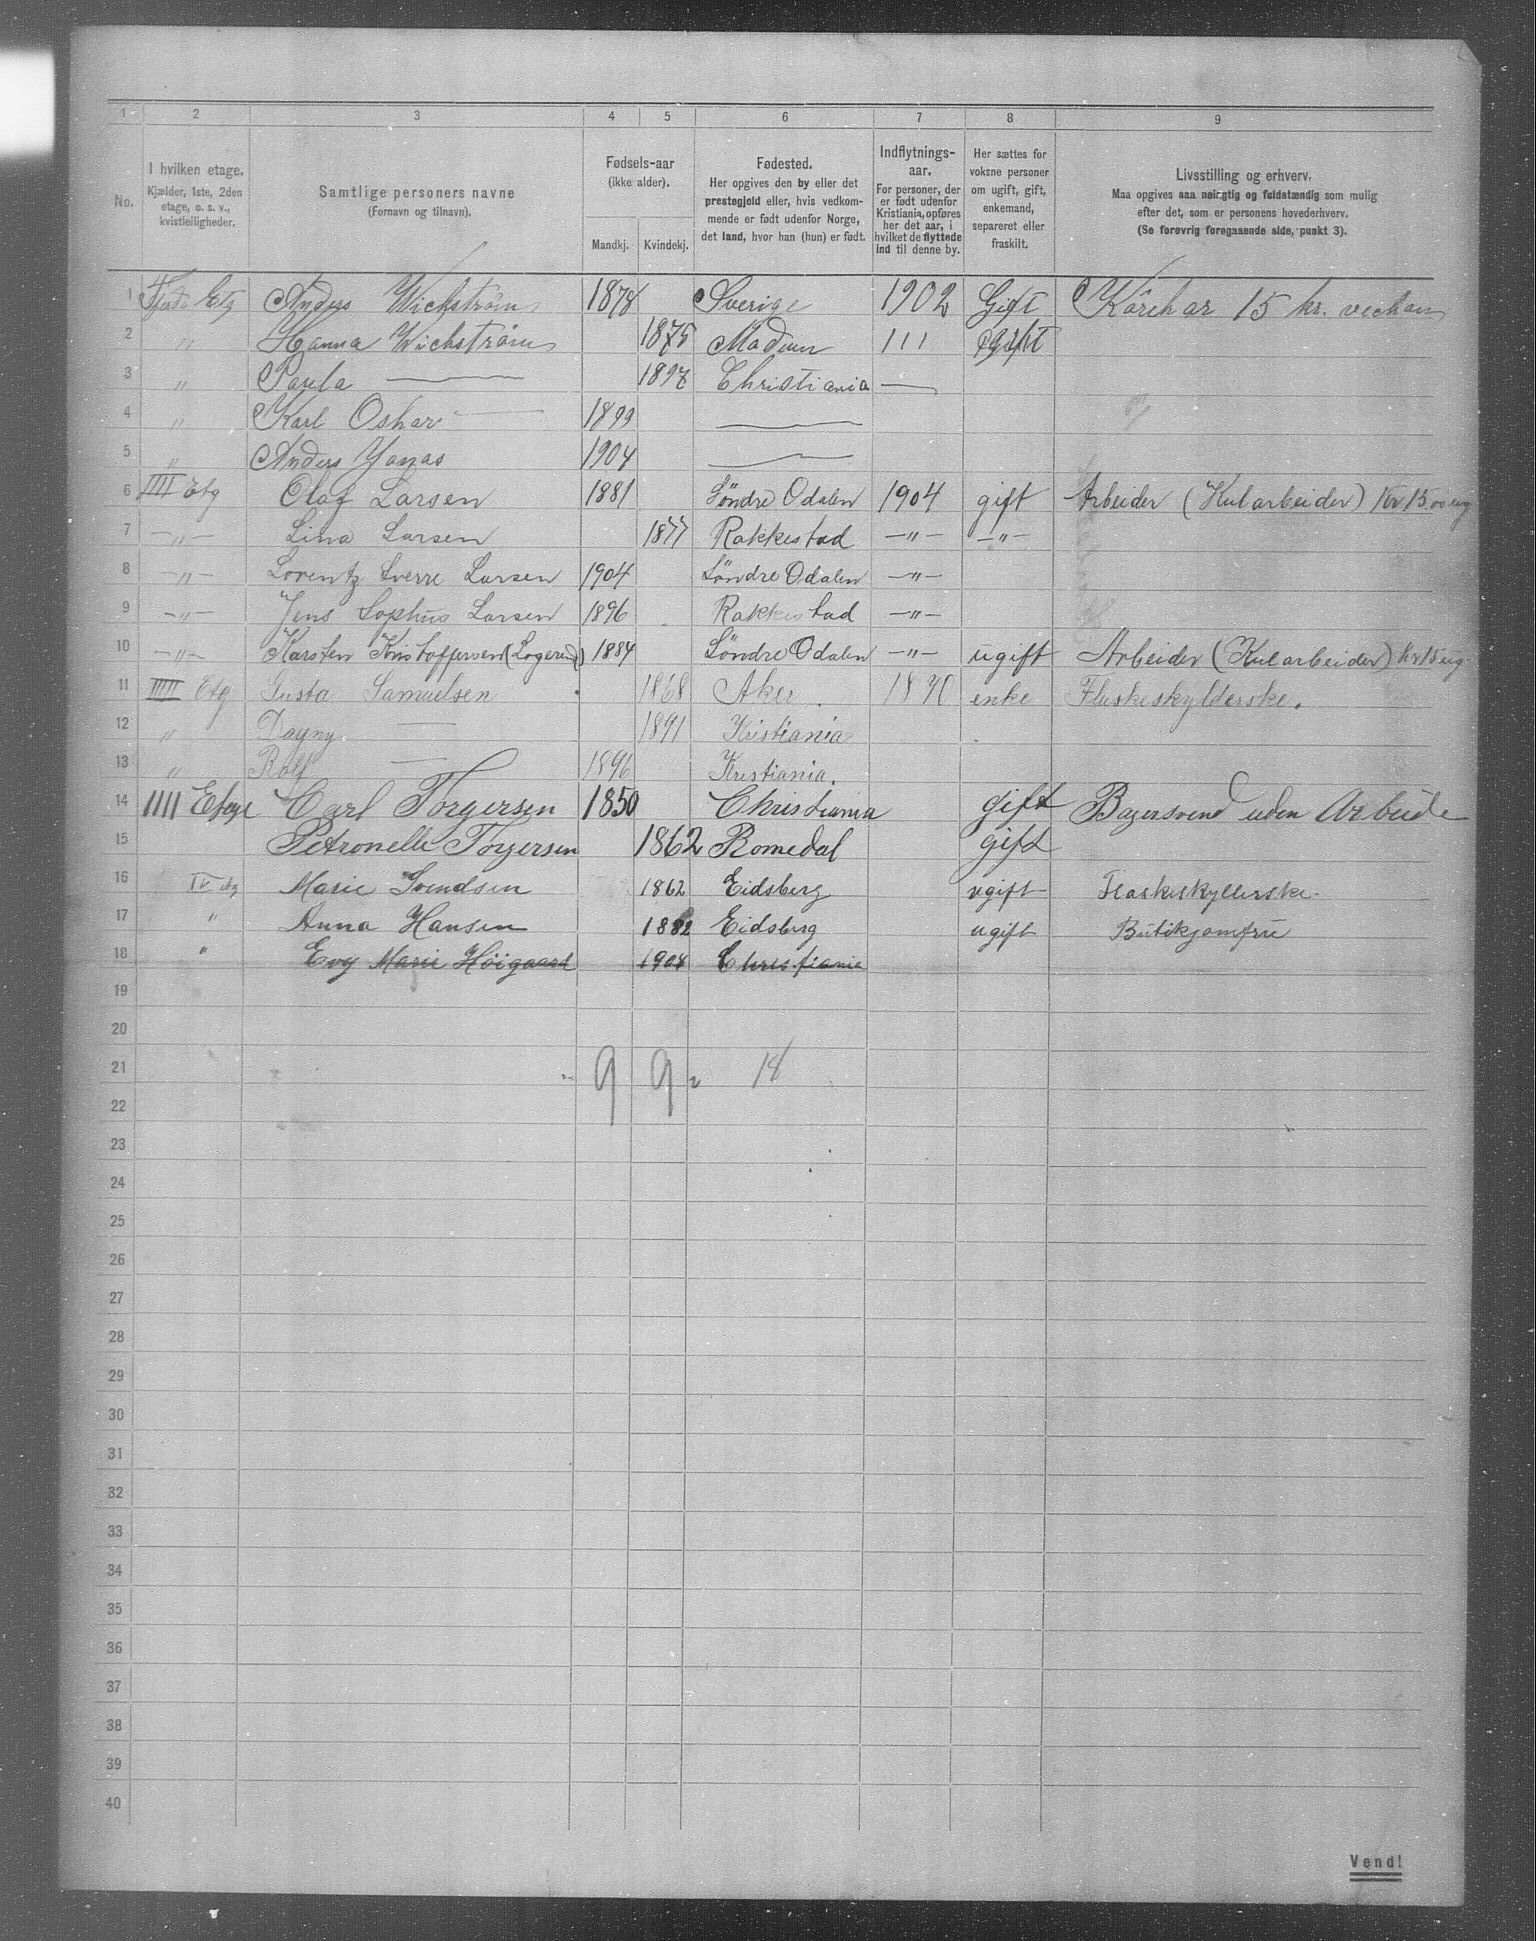 1 2 3 4 5 6 7 8 9
No.
I hvilken etage.
Kjælder, 1ste, 2den
etage, o. s. v.,
kvistleiligheder.
Samtlige personers navne
(Fornavn og tilnavn).
Fødsels-aar
(ikke alder).
Mandkj. Kvindekj.
Fødested.
Her opgives den by eller det
prestegjeld eller, hvis vedkom-
mende er født udenfor Norge,
det land, hvor han (hun) er født.
Indflytnings-
aar.
For personer, der
er født udenfor
Kristiania, opføres
her det aar, i
hvilket de flyttede
ind til denne by.
Her sættes for
voksne personer
om ugift, gift,
enkemand,
separeret eller
fraskilt.
Livsstilling og erhverv.
Maa opgives saa nøiagtig og fuldstændig som mulig
efter det, som er personens hovederhverv.
(Se forøvrig foregaaende side, punkt 3).
1 Etg Anders Wickstrøm 1878 Sverige 1902 Gift 15 kr.
2 " Hanna Wickstrøm 1875 Modum 111 Gift
3 " Paula — 1897 Christiania —
4 " Karl Oskar — 1899 —
5 " Anders Yonas 1904 —
6 IIII Etg Olaf Larsen 1881 Søndre Odalen 1904 gift Arbeider (Kularbeider)
7 —"— Lina Larsen 1877 Rakkestad —"— —"—
8 —"— Lorentz Sverre Larsen 1904 Søndre Odalen —"—
9 —"— Jens Sophus Larsen 1896 Rakkestad —"—
10 —"— Karsten Kristoffersen (Logerend) 1884 Søndre Odalen —"— ugift Arbeider (Kularbeider)
11 IIII Etg Gusta Samuelsen 1868 Aker. 1890 enke Flaskeskylderske.
12 " Dagny — 1891 Kristiania
13 " Rolf — 1896 Kristiania.
14 IIII Etage Carl Torgersen 1850 Christiania gift Bagersvend uden Arbeide
15 Petronelle Torgersen 1862 Romedal gift
16 IV etg Marie Svendsen 1862 Eidsberg ugift Flaskeskyllerske.
17 " Anna Hansen 1882 Eidsberg ugift Butikjomfru
18 " Evy Marie Höigaard 1904 Christiania
19
20
21 9 9 18
22
23
24
25
26
27
28
29
30
31
32
33
34
35
36
37
38
39
40
Vend!